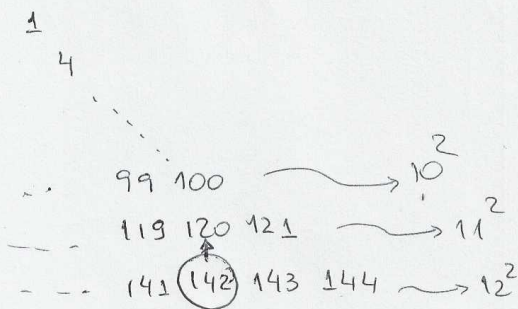 1
4
99 100 → 10²
119 120 121 → 11²
141 142 143 144 → 12²